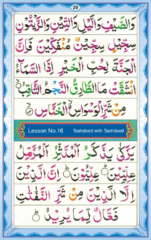 29
وَالصَّيْفِ وَالَّيْلِ وَالتِّيْنِ وَالزَّيْتُوْنِ
سِجِّيْلٍ سِجِّيْنٌ مُنْفَكِّيْنَ فَاِنَّ
الْجَنَّةَ لِحُبِّ الْخَيْرِ اِذَا السَّمَآءُ
انْشَقَّتْ مَا الطَّارِقُ النَّجْمُ الثَّاقِبُ
مِنْ شَرِّ الْوَسْوَاسِ الْخَنَّاسِ
Lesson No.16 Tashdeed with Tashdeed
يَزَّكّٰى يَذَّكَّرُ الْمُدَّثِّرُ الْمُزَّمِّلُ
عِلِّيِّيْنَ عِلِّيُّوْنَ
اِلَّا الَّذِيْنَ مِنْ شَرِّ النَّفّٰثٰتِ
فَعَّالٌ لِّمَا يُرِيْدُ